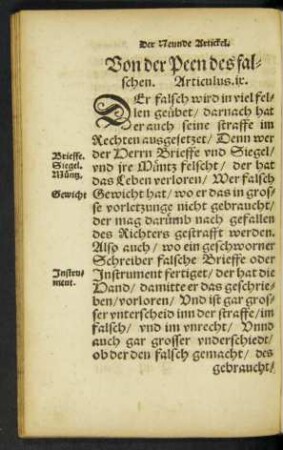 Der Neunde Artickel.
Von der Peen des fal-
schen. Articulus. ix.
DEr falsch wird in viel fel-
len geübet/ darnach hat
er auch seine straffe im
Rechten ausgesetzet/ Denn wer
der Herrn Brieffe vnd Siegel/
vnd jre Müntz felscht/ der hat
das Leben verloren/ Wer falsch
Gewicht hat/ wo er das in gros-
se vorletzunge nicht gebraucht/
der mag darümb nach gefallen
des Richters gestrafft werden.
Also auch/ wo ein geschworner
Schreiber falsche Brieffe oder
Instrument fertiget/ der hat die
Hand/ damitte er das geschrie-
ben/ vorloren/ Vnd ist gar gros-
ser vnterscheid inn der straffe/ im
falsch/ vnd im vnrecht/ Vnnd
auch gar grosser vnderschiedt/
ob der den falsch gemacht/ des
gebraucht/
Brieffe.
Siegel.
Müntz.
Gewicht
Instru-
ment.